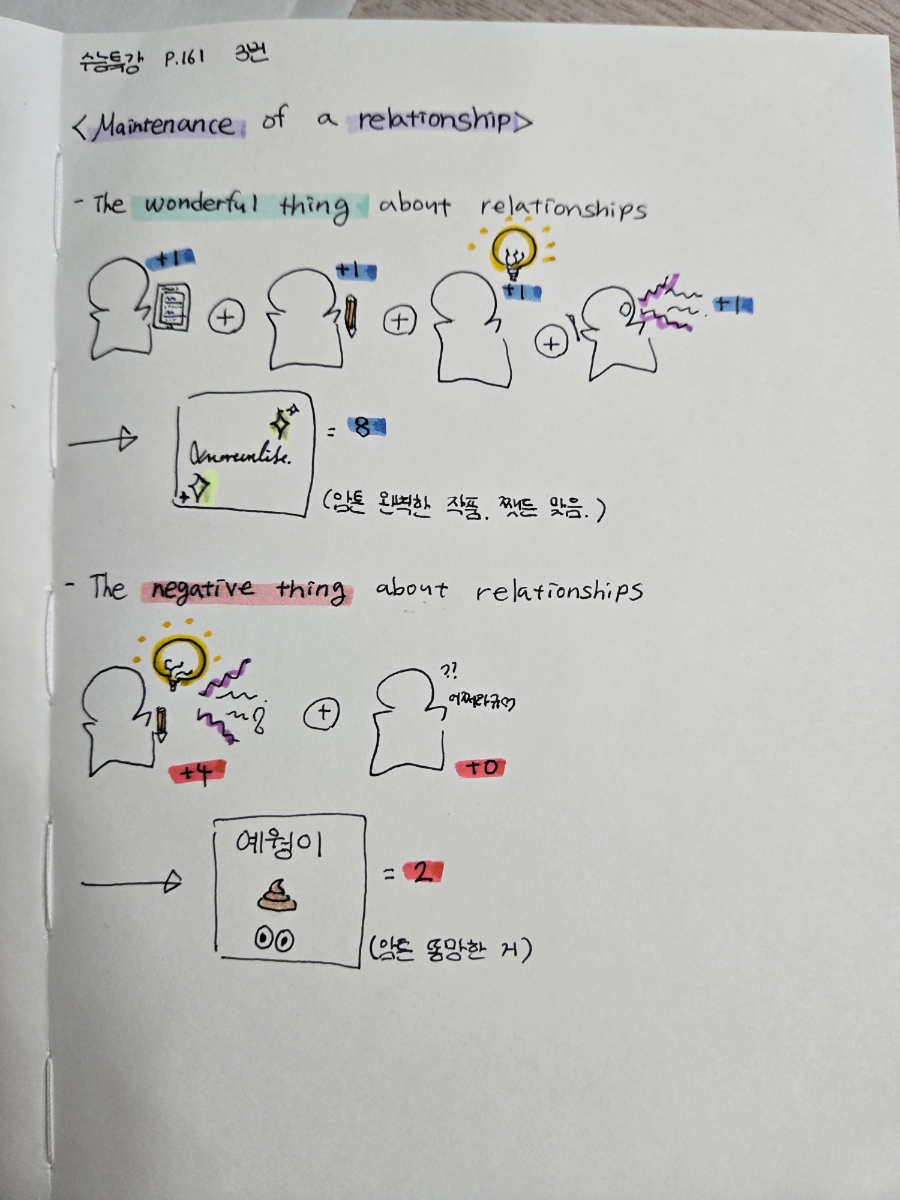 수능특강 P.161 3번
<Maintenance of a relationship>
- The wonderful thing about relationships
+1 +1 +1 +1
= 8
(암튼 완벽한 작품. 쨌든 맞음.)
- The negative thing about relationships
??
어쩌라규
+4 +0
예웡이
= 2
(암튼 똥망한 거)